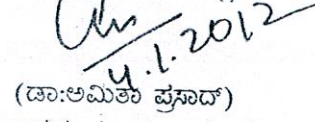 4.1.2012
(ಡಾ:ಅಮಿತಾ ಪ್ರಸಾದ್)